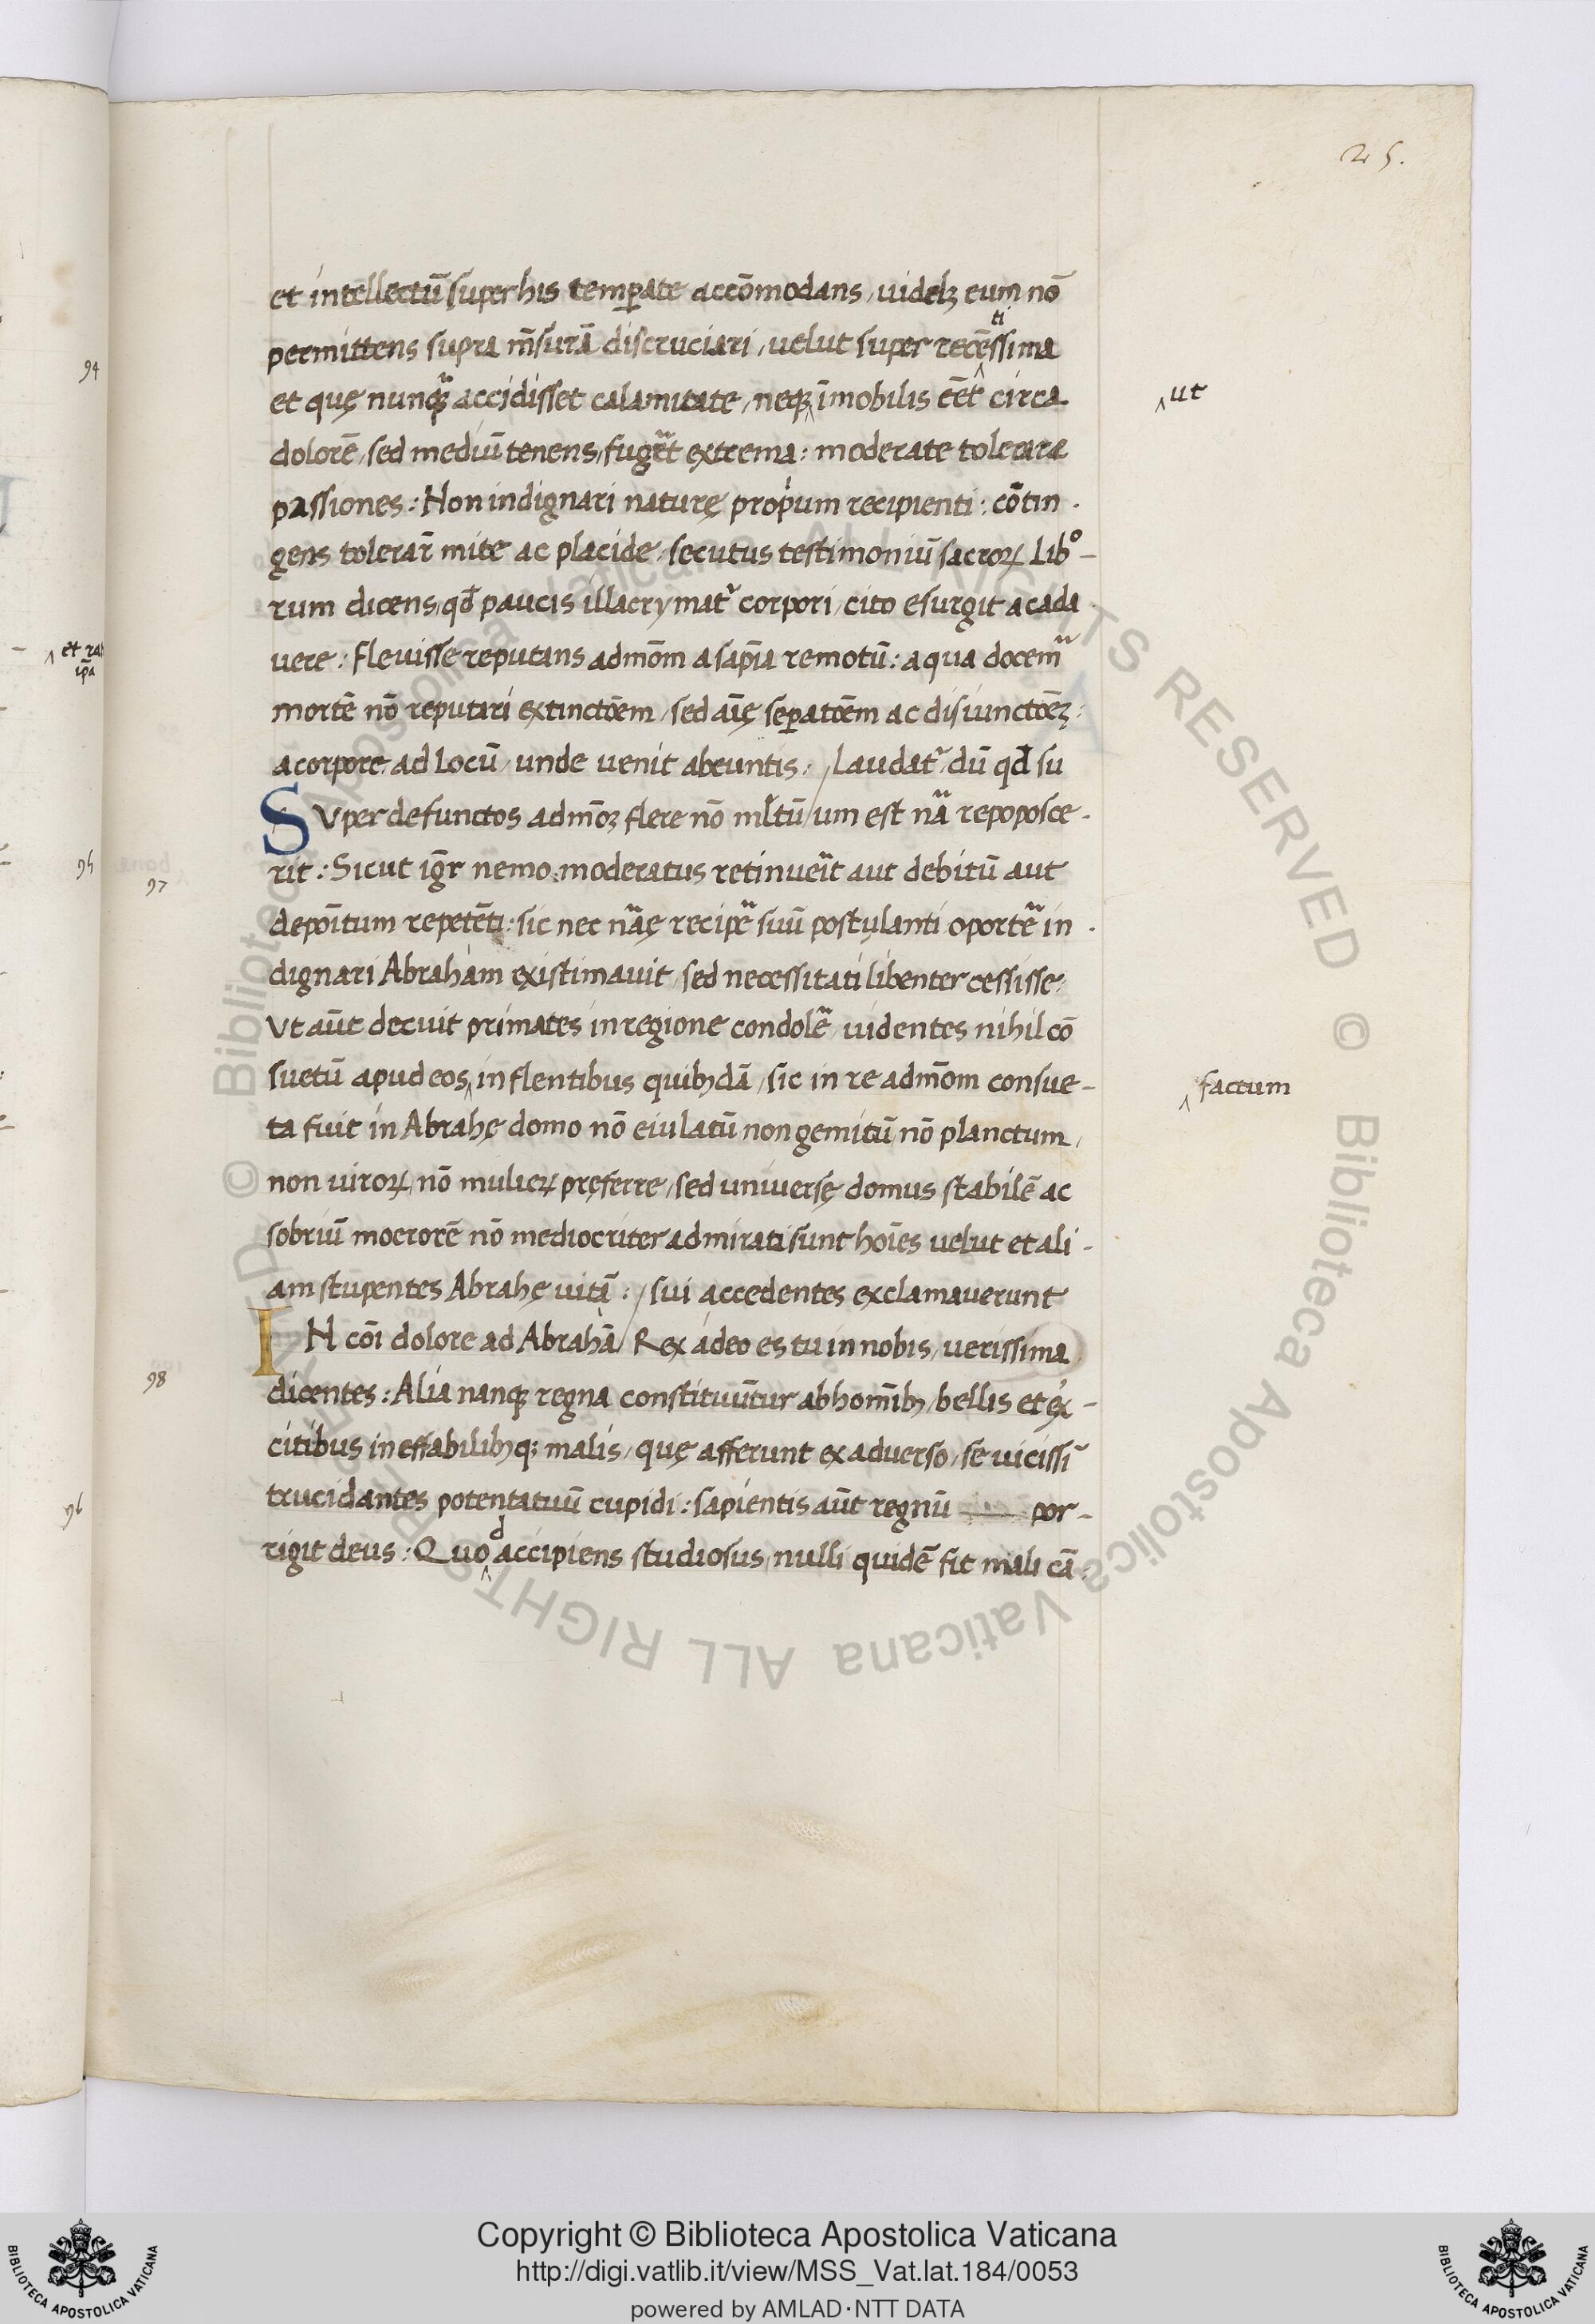 25.
et intellectū super his temperate accōmodans, uidelꝫ eum nō
permittens supra m̄surā discruciari, uelut super recēssima
ti
et quę nunqᷓ accidisset calamitate, neqꝫ ‸ īmobilis eēt circa
‸ ut
dolorē, sed mediū tenens, fugᷓet extrema: moderate tolerare
passiones: Non indignari naturę proṗum recipienti: cōtin-
gens tolerar̄ mite ac placide, secutus testimoniū sacroꝝ Lib°-
rum dicens, qđ paucis illacrymat᷑ corpori, cito esurgit a cada
uere: flevisse reputans admōm a sapīa remotū: a qua docemᷓ
mortē nō reputari extinctōem, sed aīę seꝑatōem ac disiunctōeꝫ:
a corpore, ad Locū, unde uenit abeuntis: / Laudat᷑ dū qđ su
SVper defunctos admōꝫ flere nō ml̄tū / um est nᷓa repoposce-
97
rit: Sicut igr̄ nemo moderatus retinueīt aut debitū aut
depoītum repetēti: sic nec nᷓaę recipᷓe suū postulanti oportᷓe in-
dignari Abraham existimauit, sed necessitati libenter cessisse:
Vt aūt decuit primates in regione condolᷓe, uidentes nihil cō
suetū apud eos ‸ in flentibus quibꝫdā, sic in re admōm consue-
‸ factum
ta fuit in Abrahę domo nō eiulatū non gemitū nō planctum,
non uiroꝝ, nō mulieꝝ pręferre, sed uniuersę domus stabilē ac
sobriū moerorē nō mediocriter admirati sunt hoīes uelut et ali-
am stupentes Abrahę uitā: / sui accedentes exclamauerunt
IN cōi dolore ad Abrahā / Rex a deo es tu in nobis, uerissima
98
dicentes: Alia nanqꝫ regna constituūtur ab homībꝫ, bellis et ex̓-
citibus ineffabilibꝫqꝫ malis, quę afferunt ex aduerso, se uicissī
trucidantes potentatuū cupidi: sapientis aūt regnū por-
rigit deus: Quo‸ accipiens studiosus, nulli quidē fit mali cā:
d
94
‸ et ra
ipa
95
96
© Biblioteca Apostolica Vaticana ALL RIGHTS RESERVED © Biblioteca Apostolica Vaticana ALL RIGHTS RESERVED
Copyright © Biblioteca Apostolica Vaticana
http://digi.vatlib.it/view/MSS_Vat.lat.184/0053
powered by AMLAD·NTT DATA
BIBLIOTECA APOSTOLICA VATICANA
BIBLIOTECA APOSTOLICA VATICANA